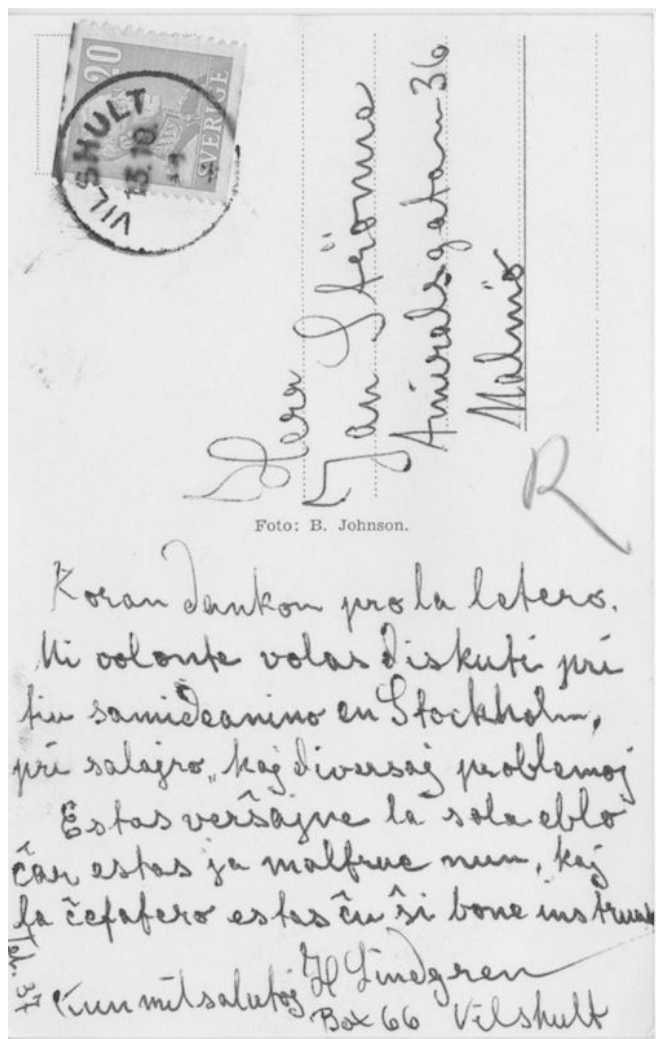 20
SVERIGE
VILSHULT
13.10
Herr
Jan Strömne
Amiralsgatan 36
Malmö
R
Foto: B. Johnson.
Koran dankon pro la letero.
Mi volonte volas diskuti pri
tiu samideanino en Stockholm,
pri salajro, kaj diversaj problemoj
Estas verŝajne la sola eblo
ĉar estas ja malfrue nun, kaj
la ĉefafero estas ĉu ŝi bone instruas
Kun mil salutoj H Lindgren
Box 66 Vilshult
Tel. 37